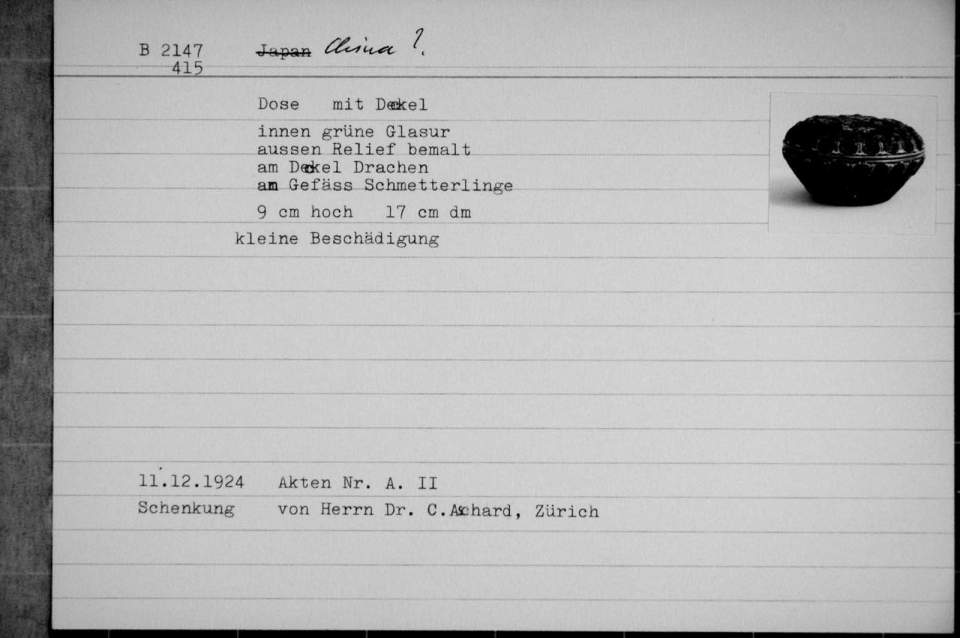 B 2147 Japan China ?.
415
Dose mit Deckel
innen grüne Glasur
aussen Relief bemalt
am Deckel Drachen
am Gefäss Schmetterlinge
9 cm hoch 17 cm dm
kleine Beschädigung
11.12.1924 Akten Nr. A. II
Schenkung von Herrn Dr. C.Achard, Zürich